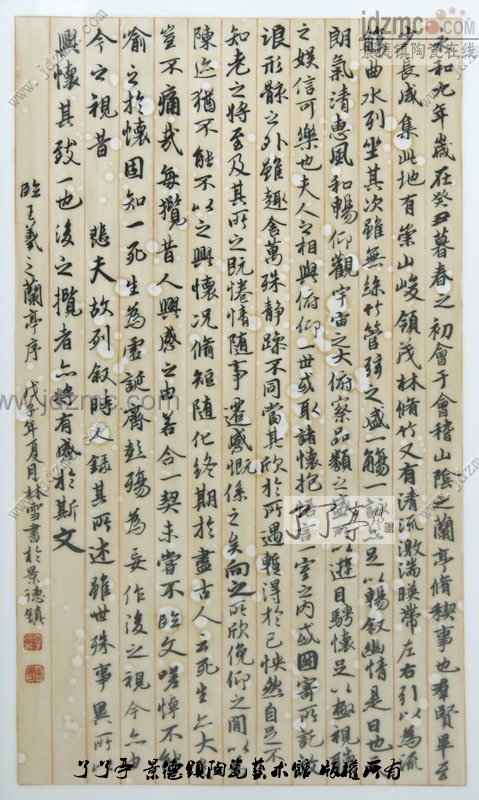 永和九年歲在癸丑暮春之初會于會稽山陰之蘭亭脩稧事也羣賢畢至
少長咸集此地有崇山峻領茂林脩竹又有清流激湍暎帶左右引以為流
觴曲水列坐其次雖無絲竹管弦之盛一觴一詠足以暢叙幽情是日也
朗氣清惠風和暢仰觀宇宙之大俯察品類之盛所以遊目騁懷足以極視聽
之娱信可樂也夫人之相與俯仰一世或取諸懷抱悟言一室之内或因寄所託放
浪形骸之外雖趣舍萬殊静躁不同當其欣於所遇蹔得於己怏然自足不
知老之將至及其所之既惓情随事遷感慨係之矣向之所欣俛仰之間以
陳迹猶不能不以之興懷况脩短随化終期於盡古人云死生亦大
豈不痛哉每攬昔人興感之由若合一契未嘗不臨文嗟悼不能
喻之於懷固知一死生為虛誕齊彭殤為妄作後之視今亦由
今之視昔 悲夫故列叙時人録其所述雖世殊事異所以
興懷其致一也後之攬者亦將有感於斯文
臨王羲之蘭亭序 戊子年夏月林雪書於景德鎮
jdzmc.com
景德镇陶瓷在线
www.jdzmc.com
了了亭
了了亭 景德鎮陶瓷藝术館 版權所有